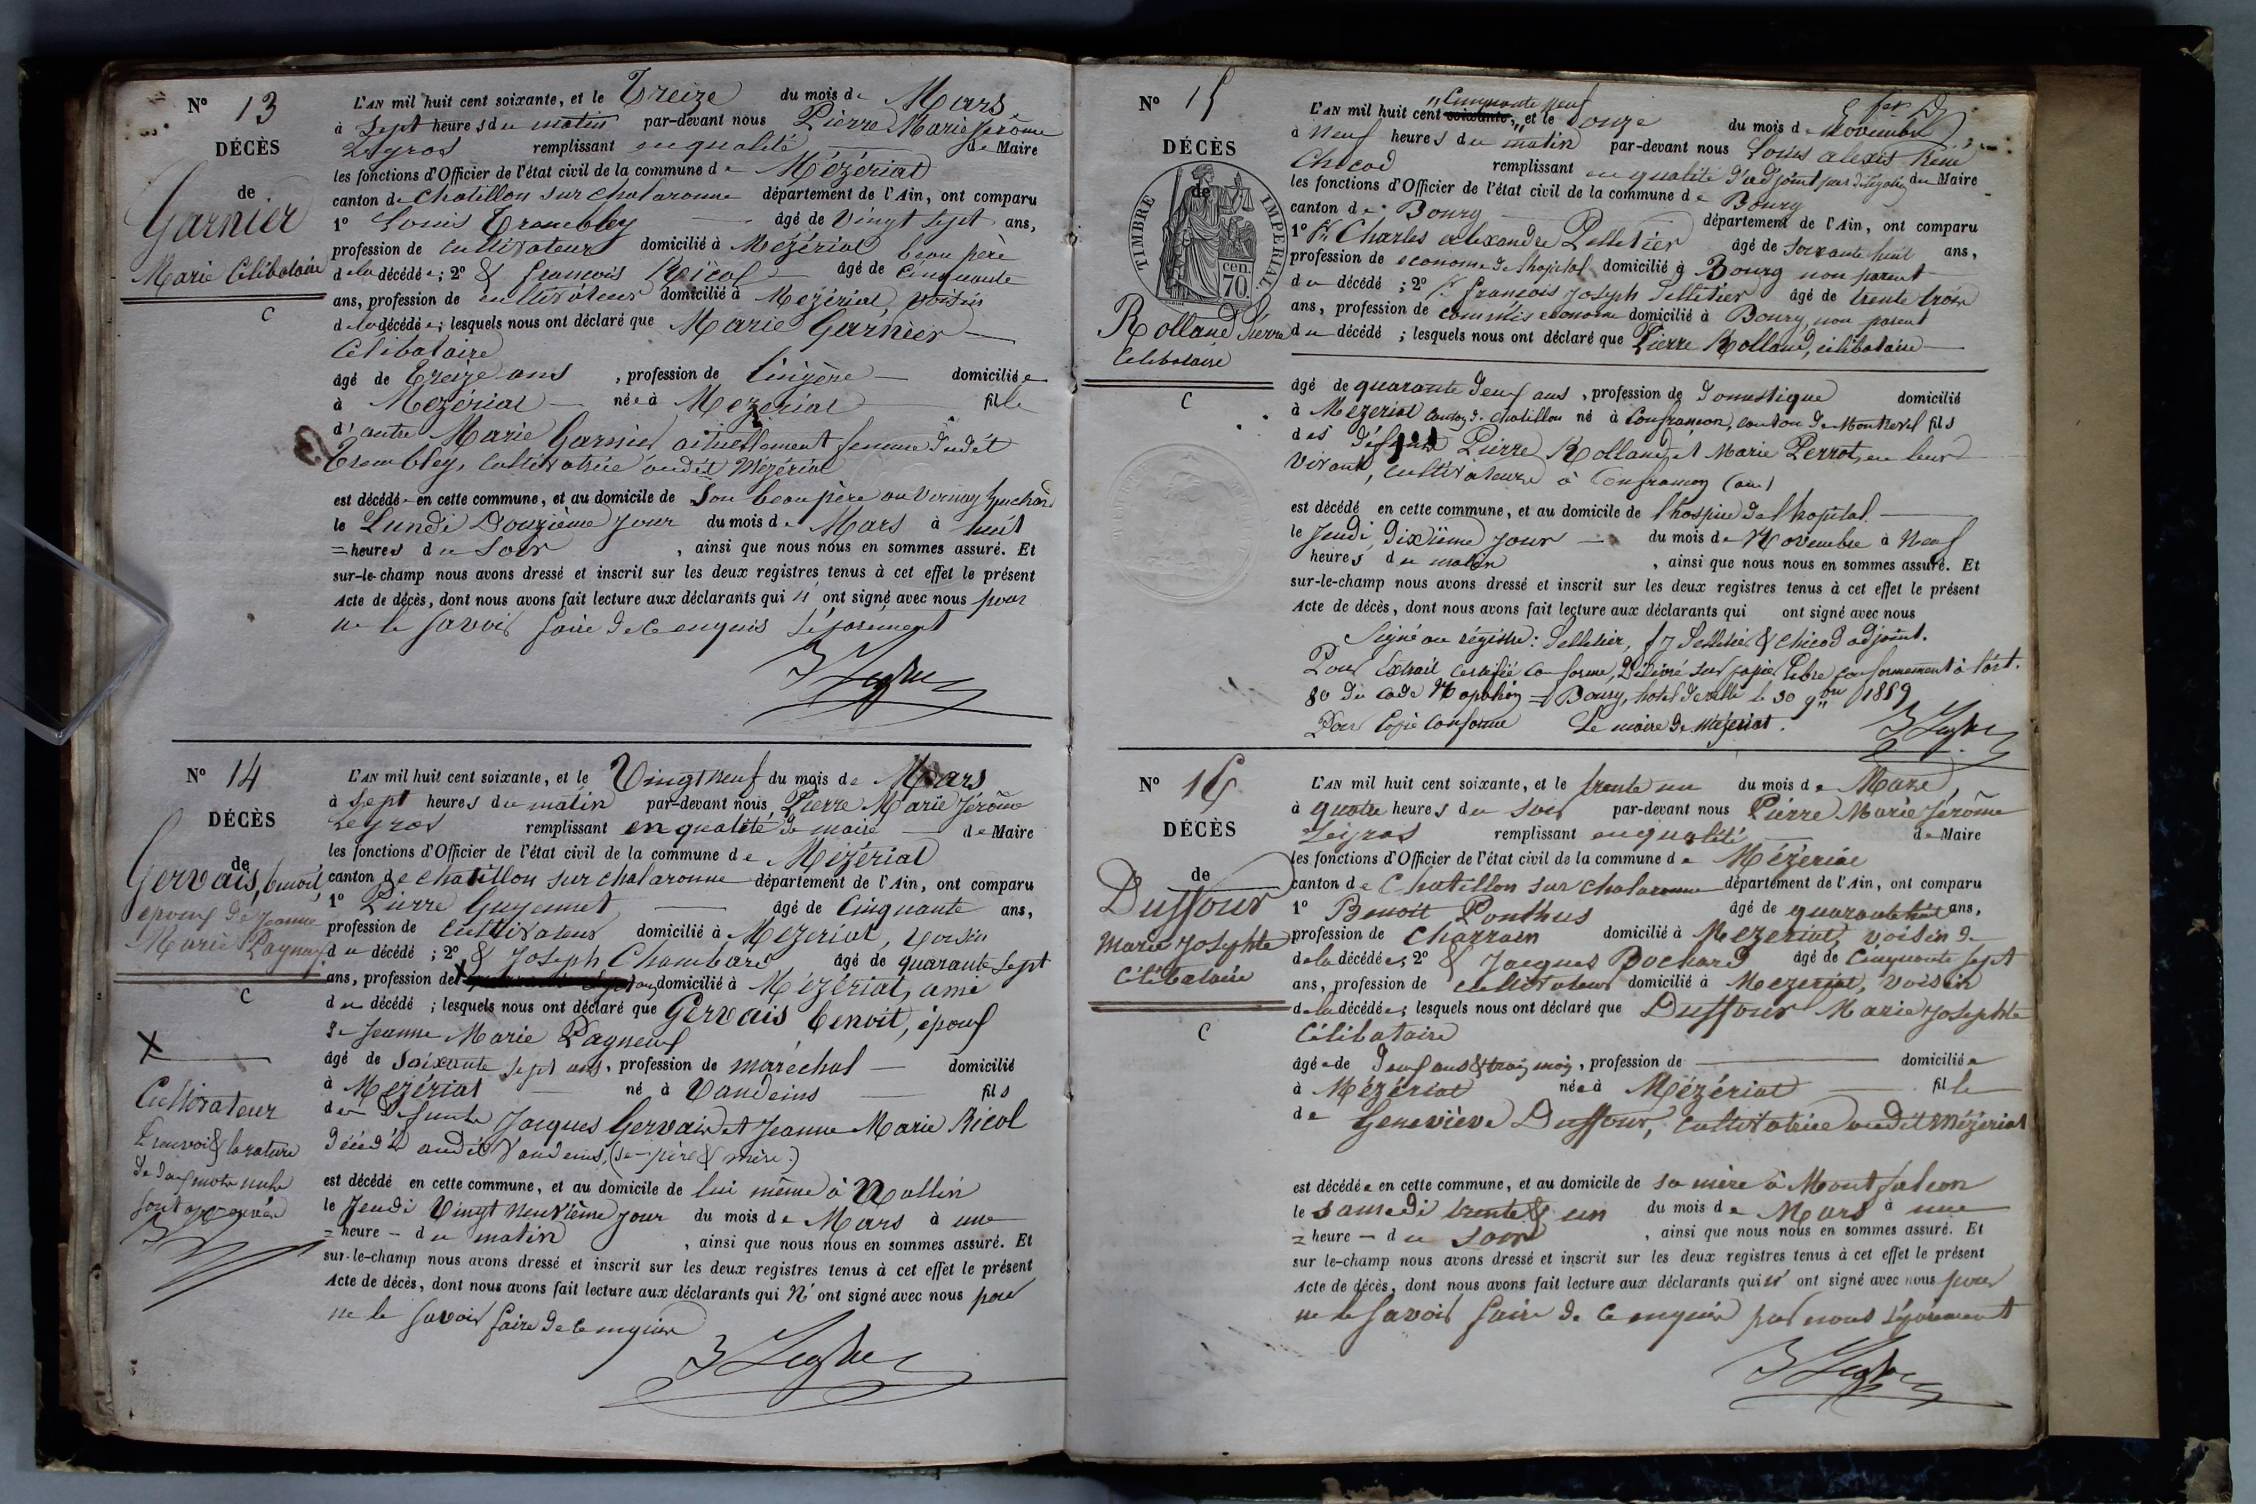 N° 13
DÉCÈS
de
Garnier
Marie Célibataire
C
L'AN mil huit cent soixante, et le Treize du mois de Mars
à sept heures du matin par-devant nous Pierre Marie Jérôme
Legros remplissant en qualité de Maire
les fonctions d'Officier de l'état civil de la commune de Mézériat
canton de Chatillon sur Chalaronne département de l'Ain, ont comparu
1° Louis Trembley âgé de vingt sept ans,
profession de cultivateur domicilié à Mézériat beau père
de la décédée; 2° & françois Ricol âgé de Cinquante
ans, profession de cultivateur domicilié à Mézériat, voisin
de la décédée; lesquels nous ont déclaré que Marie Garnier
Célibataire
âgé de Treize ans, profession de lingère domiciliée
à Mézériat née à Mézériat fille
d'autre Marie Garnier actuellement femme dudit
Trembley, cultivatrice audit Mézériat
est décédée en cette commune, et au domicile de son beau père au Vernay
le Lundi Douzième jour du mois de Mars à huit
= heures du soir, ainsi que nous nous en sommes assuré. Et
sur-le-champ nous avons dressé et inscrit sur les deux registres tenus à cet effet le présent
Acte de décès, dont nous avons fait lecture aux déclarants qui n' ont signé avec nous pour
ne le savoir faire de ce enquis séparément
N° 14
DÉCÈS
de
Gervais, benoit,
époux de Jeanne
Marie Pagneux
C
X
Cultivateur
le renvoi & la rature
de deux mots nuls
sont approuvés
L'AN mil huit cent soixante, et le Vingt neuf du mois de Mars
à sept heures du matin par-devant nous Pierre Marie Jérôme
Legros remplissant en qualité de maire de Maire
les fonctions d'Officier de l'état civil de la commune de Mézériat
canton de Chatillon sur Chalaronne département de l'Ain, ont comparu
1° Pierre Guyennet âgé de Cinquante ans,
profession de cultivateur domicilié à Mézériat, voisin
du décédé ; 2° & Joseph Chambard âgé de quarante sept
ans, profession de X domicilié à Mézériat, ami
du décédé ; lesquels nous ont déclaré que Gervais benoit, époux
de Jeanne Marie Pagneux
âgé de soixante sept ans, profession de maréchal domicilié
à Mézériat né à Vandeins fils
de defunts Jacques Gervais et Jeanne Marie Ricol
décédés audit Vandeins, (ses père & mère.)
est décédé en cette commune, et au domicile de lui même à Mollin
le Jeudi Vingt neuvième jour du mois de Mars à une
= heure - du matin, ainsi que nous nous en sommes assuré. Et
sur-le-champ nous avons dressé et inscrit sur les deux registres tenus à cet effet le présent
Acte de décès, dont nous avons fait lecture aux déclarants qui n' ont signé avec nous pour
ne le savoir faire de ce enquis
N° 15
DÉCÈS
de
TIMBRE IMPERIAL
cen.
70.
Rolland Pierre
Célibataire
C
L'AN mil huit cent soixante, cinquante neuf et le douze du mois de Novembre
à neuf heures du matin par-devant nous Louis alexis René
Chicod remplissant en qualité d'adjoint par délégation du Maire
les fonctions d'Officier de l'état civil de la commune de Bourg
canton de Bourg département de l'Ain, ont comparu
1° Sr Charles alexandre Pelletier âgé de soixante huit ans,
profession de econome de l'hopital domicilié à Bourg non parent
du décédé ; 2° Sr françois Joseph Pelletier âgé de trente trois
ans, profession de commis econome domicilié à Bourg, non parent
du décédé ; lesquels nous ont déclaré que Pierre Rolland, célibataire
âgé de quarante deux ans, profession de domestique domicilié
à Mézériat canton de Chatillon né à Confrançon, canton de Montrevel fils
des défunts Pierre Rolland et Marie Perrot, en leur
vivant, cultivateurs à Confrançon (ain)
est décédé en cette commune, et au domicile de l'hospice de l'hopital
le Jeudi, dixième jour du mois de Novembre à neuf
heures du matin, ainsi que nous nous en sommes assuré. Et
sur-le-champ nous avons dressé et inscrit sur les deux registres tenus à cet effet le présent
Acte de décès, dont nous avons fait lecture aux déclarants qui ont signé avec nous
Signé au régistre : Pelletier, f J Pelletier & Chicod adjoint.
Pour Extrait certifié conforme, Délivré sur papier libre conformement à l'art.
80 du code Napoléon = Bourg, hotel de ville le 30 9bre 1859
Pour Copie conforme Le maire de Mézériat.
N° 16
DÉCÈS
de
Duffour
Marie Josephte
Célibataire
C
L'AN mil huit cent soixante, et le trente un du mois de Mars,
à quatre heures du soir par-devant nous Pierre Marie Jérôme
Legros remplissant en qualité de Maire
les fonctions d'Officier de l'état civil de la commune de Mézériat
canton de Chatillon sur Chalaronne département de l'Ain, ont comparu
1° Benoit Ponthus âgé de quarante huit ans,
profession de Charron domicilié à Mézériat, voisin
de la décédée; 2° & Jacques Bochard âgé de Cinquante sept
ans, profession de cultivateur domicilié à Mezeriat, voisin
de la décédée; lesquels nous ont déclaré que Duffour Marie Josephte
Célibataire
âgée de deux ans & trois mois, profession de domiciliée
à Mézériat née à Mézériat fille
de Geneviève Duffour, cultivatrice audit Mézériat
est décédée en cette commune, et au domicile de sa mère à Montfalcon
le samedi trente & un du mois de Mars à une
= heure - du soir, ainsi que nous nous en sommes assuré. Et
sur le-champ nous avons dressé et inscrit sur les deux registres tenus à cet effet le présent
Acte de décès, dont nous avons fait lecture aux déclarants qui n' ont signé avec nous pour
ne le savoir faire de ce enquis par nous séparément